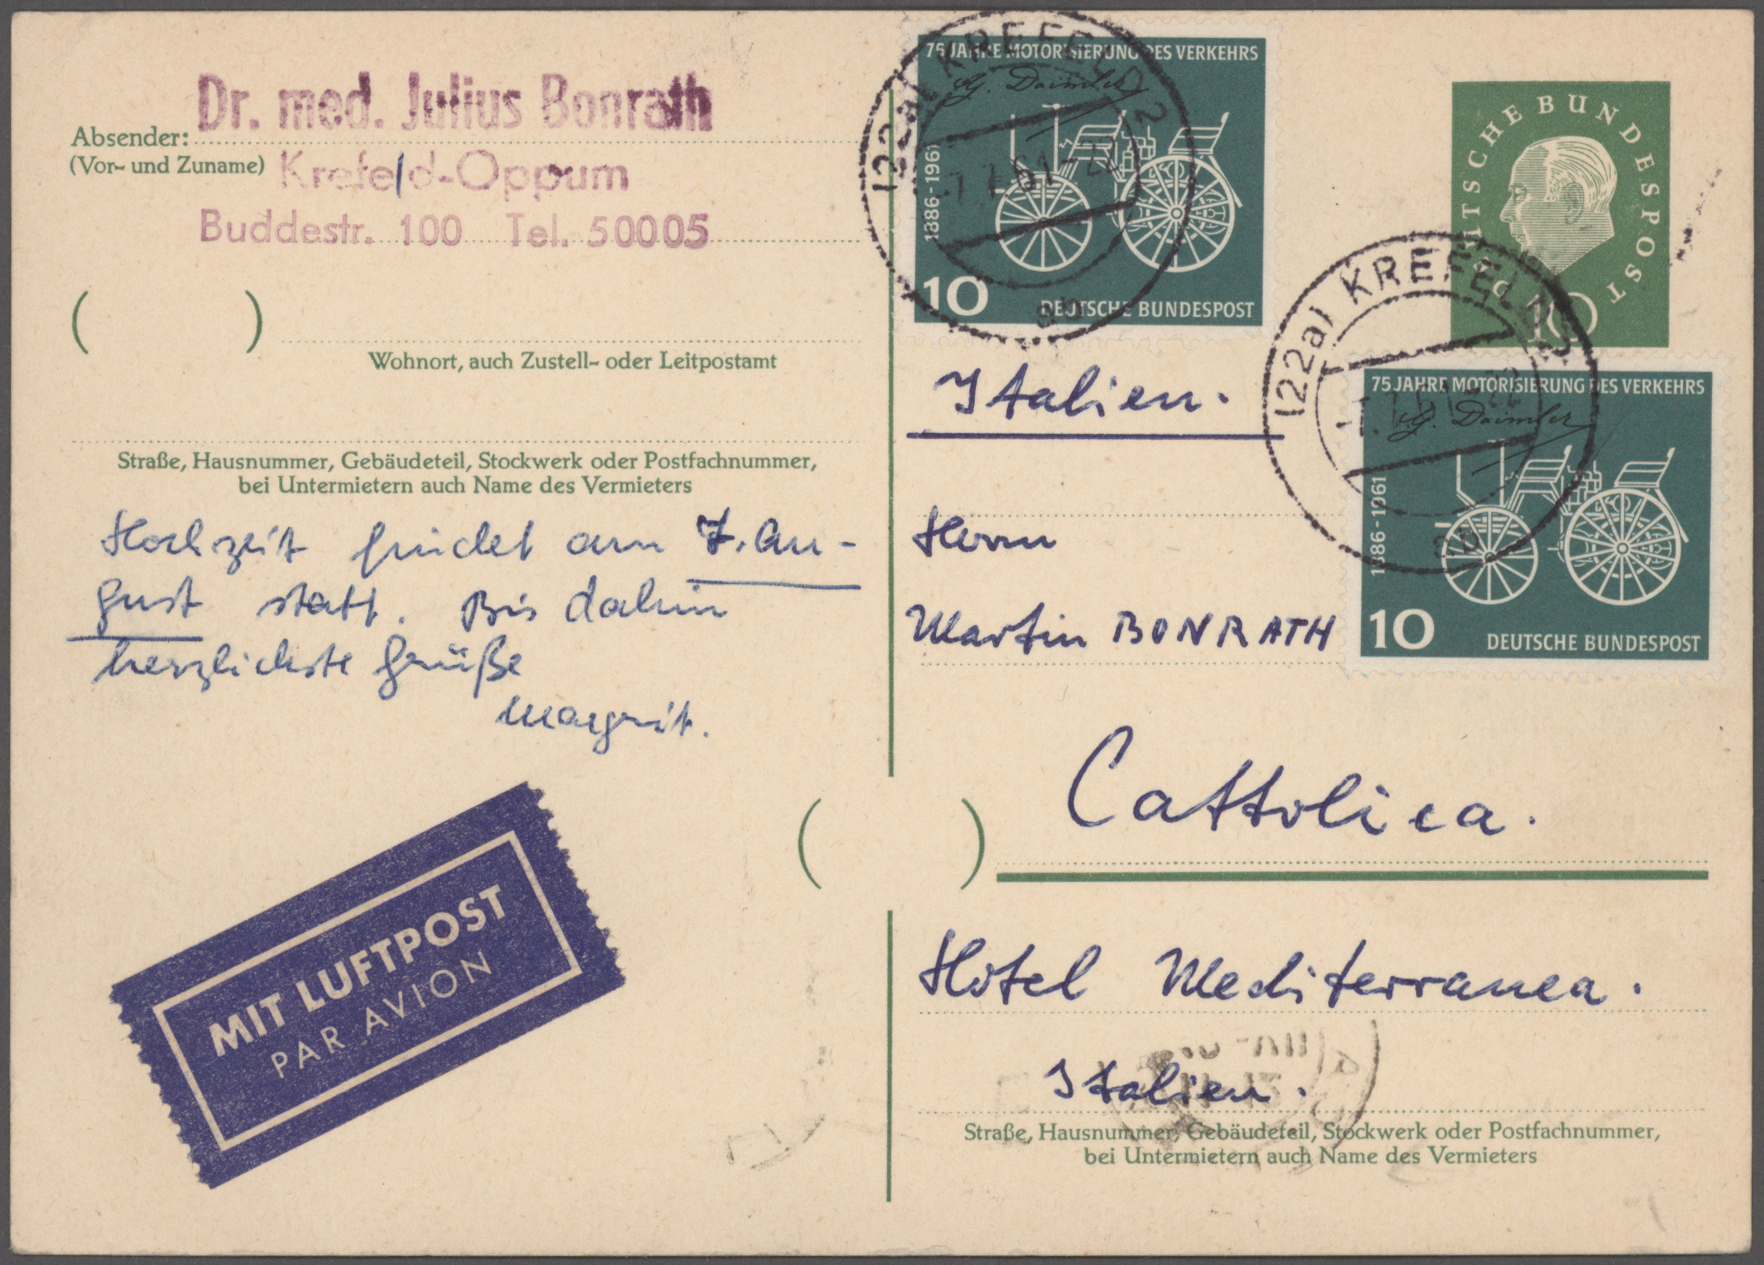 Absender: Dr. med. Julius Bonrath
(Vor- und Zuname) Krefeld-Oppum
Buddestr. 100 Tel. 50005
Wohnort, auch Zustell- oder Leitpostamt
Straße, Hausnummer, Gebäudeteil, Stockwerk oder Postfachnummer,
bei Untermietern auch Name des Vermieters
Hochzeit findet am 7. Au-
gust statt. Bis dahin
herzlichste Grüße
Margrit.
MIT LUFTPOST
PAR AVION
75 JAHRE MOTORISIERUNG DES VERKEHRS
G. Daimler
1886-1961
10
DEUTSCHE BUNDESPOST
(22a) KREFELD 2
-7.7.61-22
ab
DEUTSCHE BUNDESPOST
10
(22a) KREFELD 2
-7.7.61-22
ab
75 JAHRE MOTORISIERUNG DES VERKEHRS
G. Daimler
1886-1961
10
DEUTSCHE BUNDESPOST
Italien.
Herrn
Martin BONRATH
Cattolica.
Hotel Mediterranea.
Italien.
Straße, Hausnummer, Gebäudeteil, Stockwerk oder Postfachnummer,
bei Untermietern auch Name des Vermieters